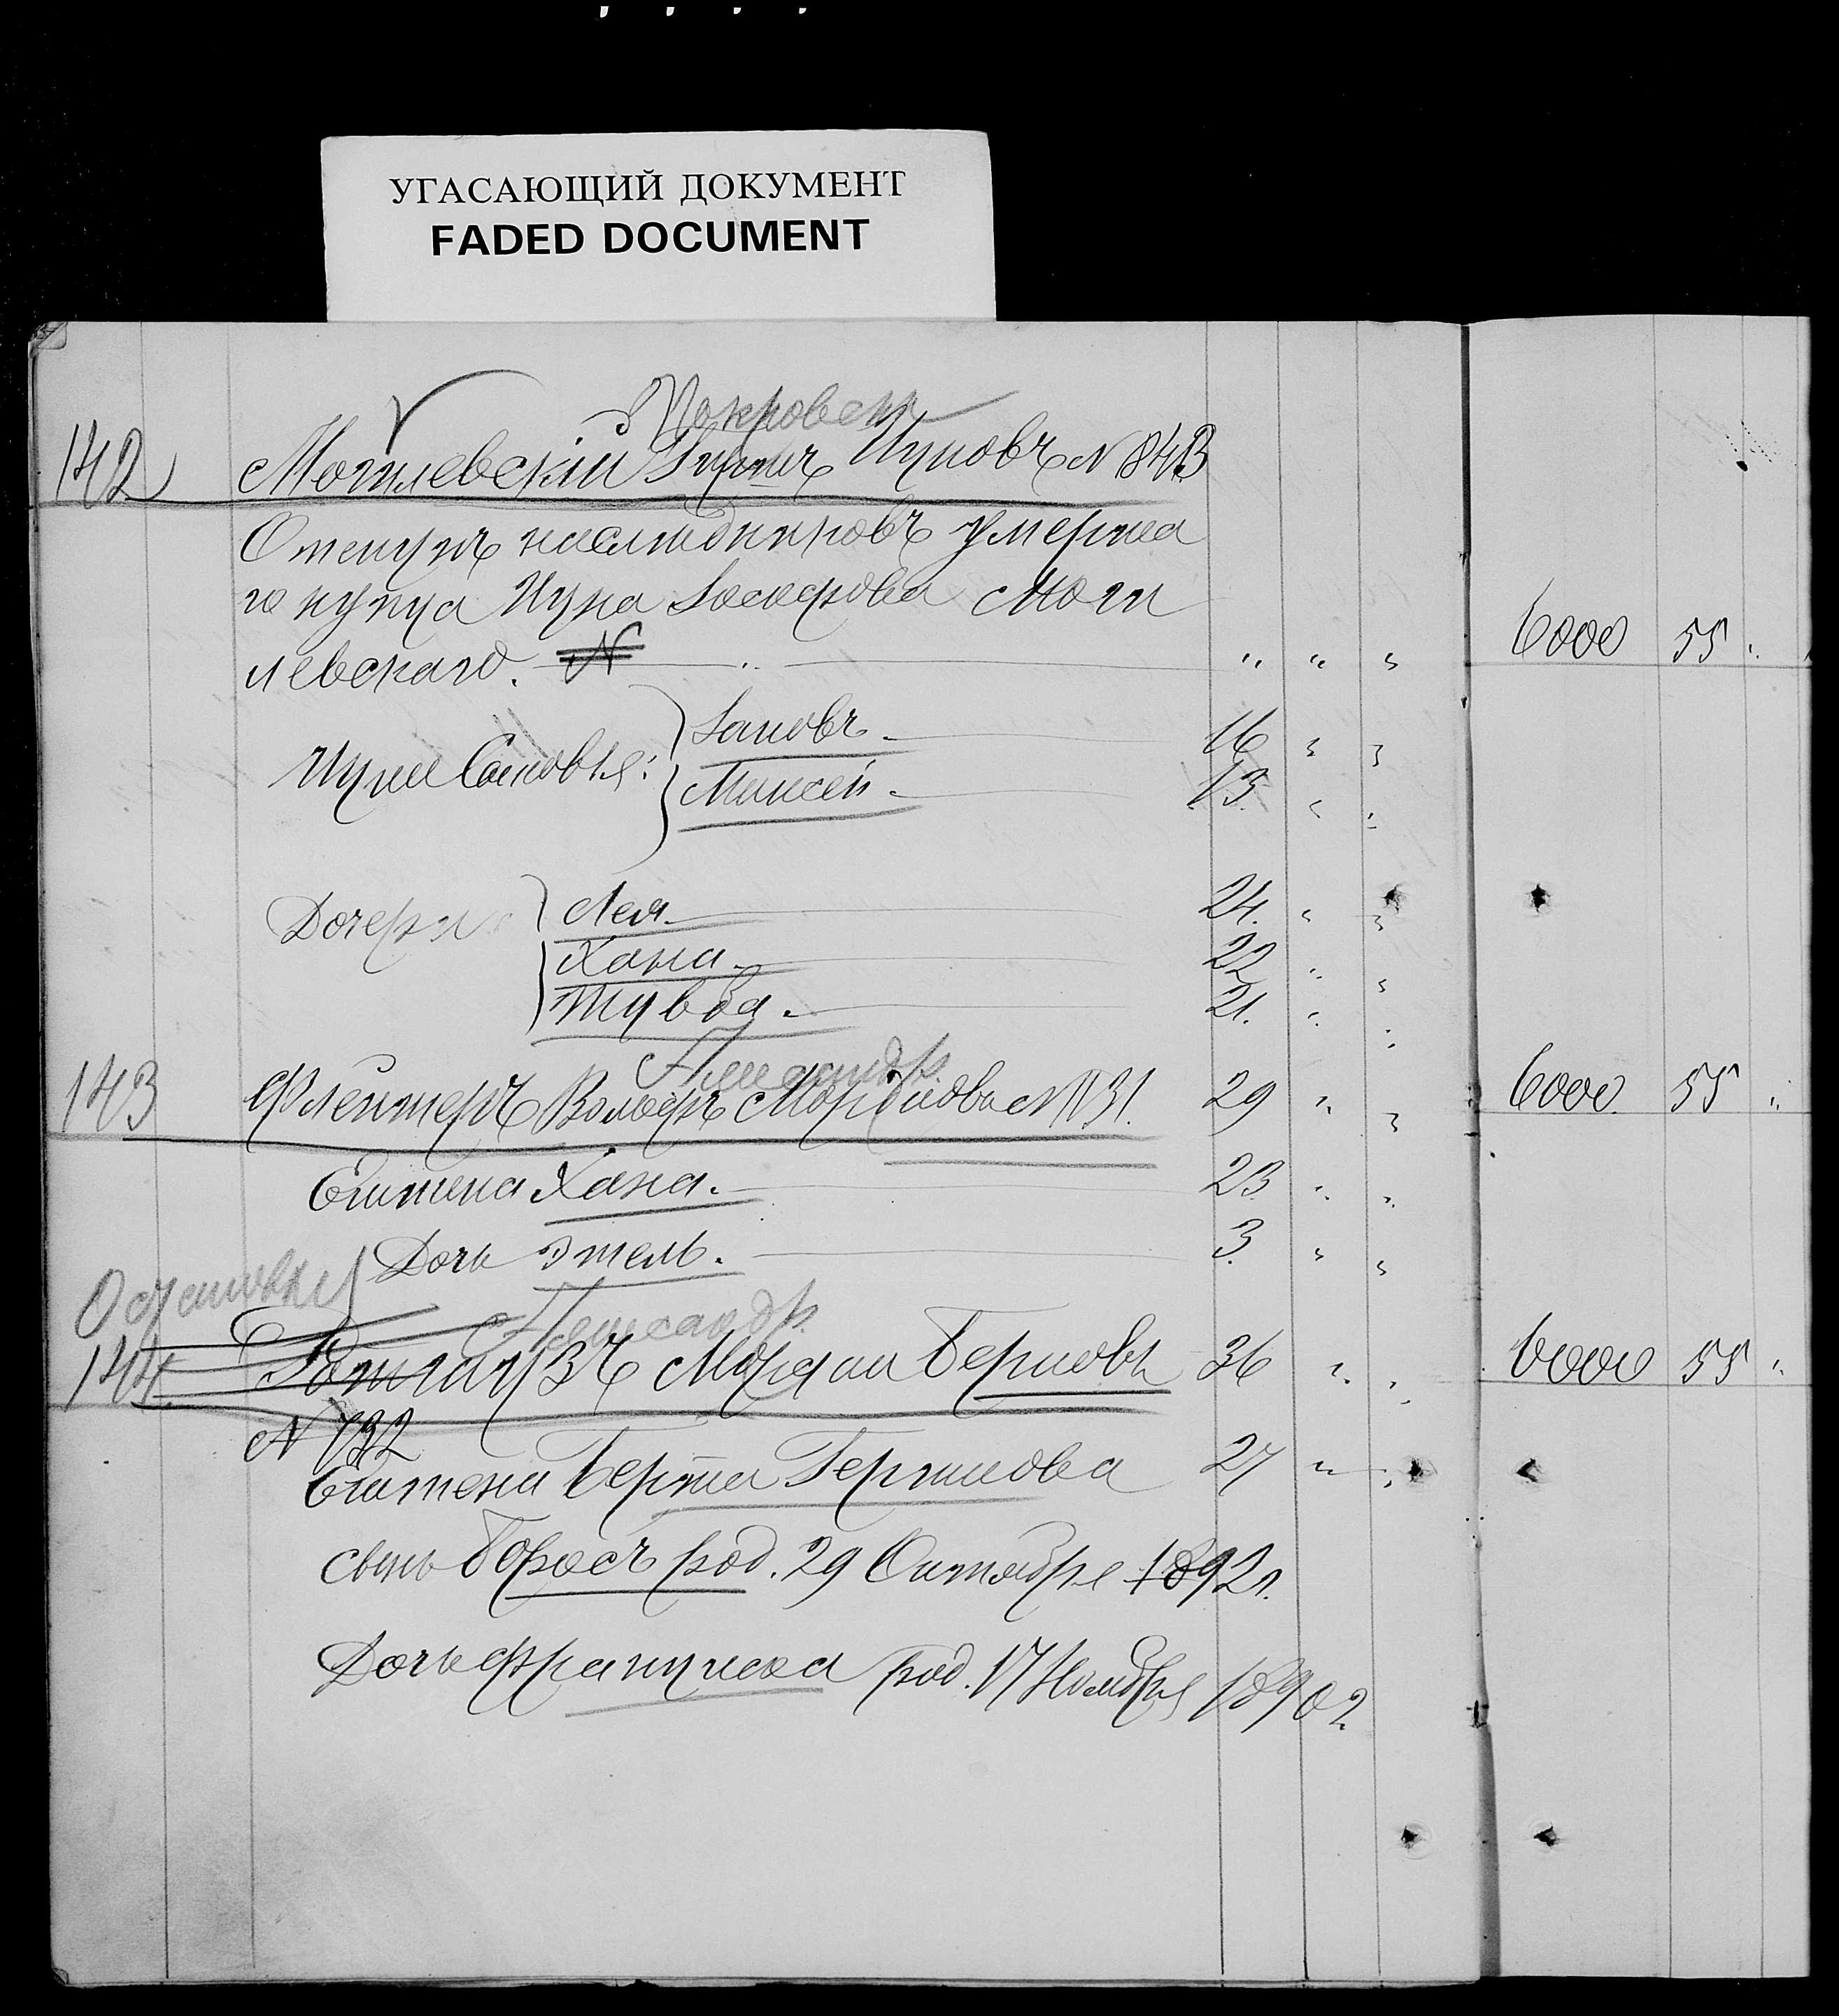 УГАСАЮЩИЙ ДОКУМЕНТ
FADED DOCUMENT
Покровск
142 Могилевскій Ицковъ N 843
Опекунъ наслѣдниковъ умерша
го купца Ицка Иосифова Моги
левскаго. N " " "
6000 55 "
Ицки Сыновья: Яковъ. 16 " "
Моисей. 13 " "
Дочери Лея. 24. " "
Хана. 22 " "
Тувба. 21. " "
Александр.
143 Флейтеръ Вольфъ Мордковъ N 731. 29 " "
6000 55 "
Его жена Хана. 23 " "
Дочь Этель. 3. " "
Александр.
144. Ротгаузъ Мордка Берковъ 36 " "
6000 55 "
N 732
Его жена Берта Гершкова 27 " "
сынъ Борисъ род. 29 Октября 1892 г.
Дочь Франциска род. 17 Ноября 1890 г.